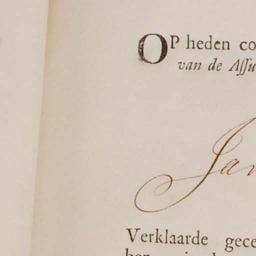 OP heden co
van de Aſſu
Jan
Verklaarde gece